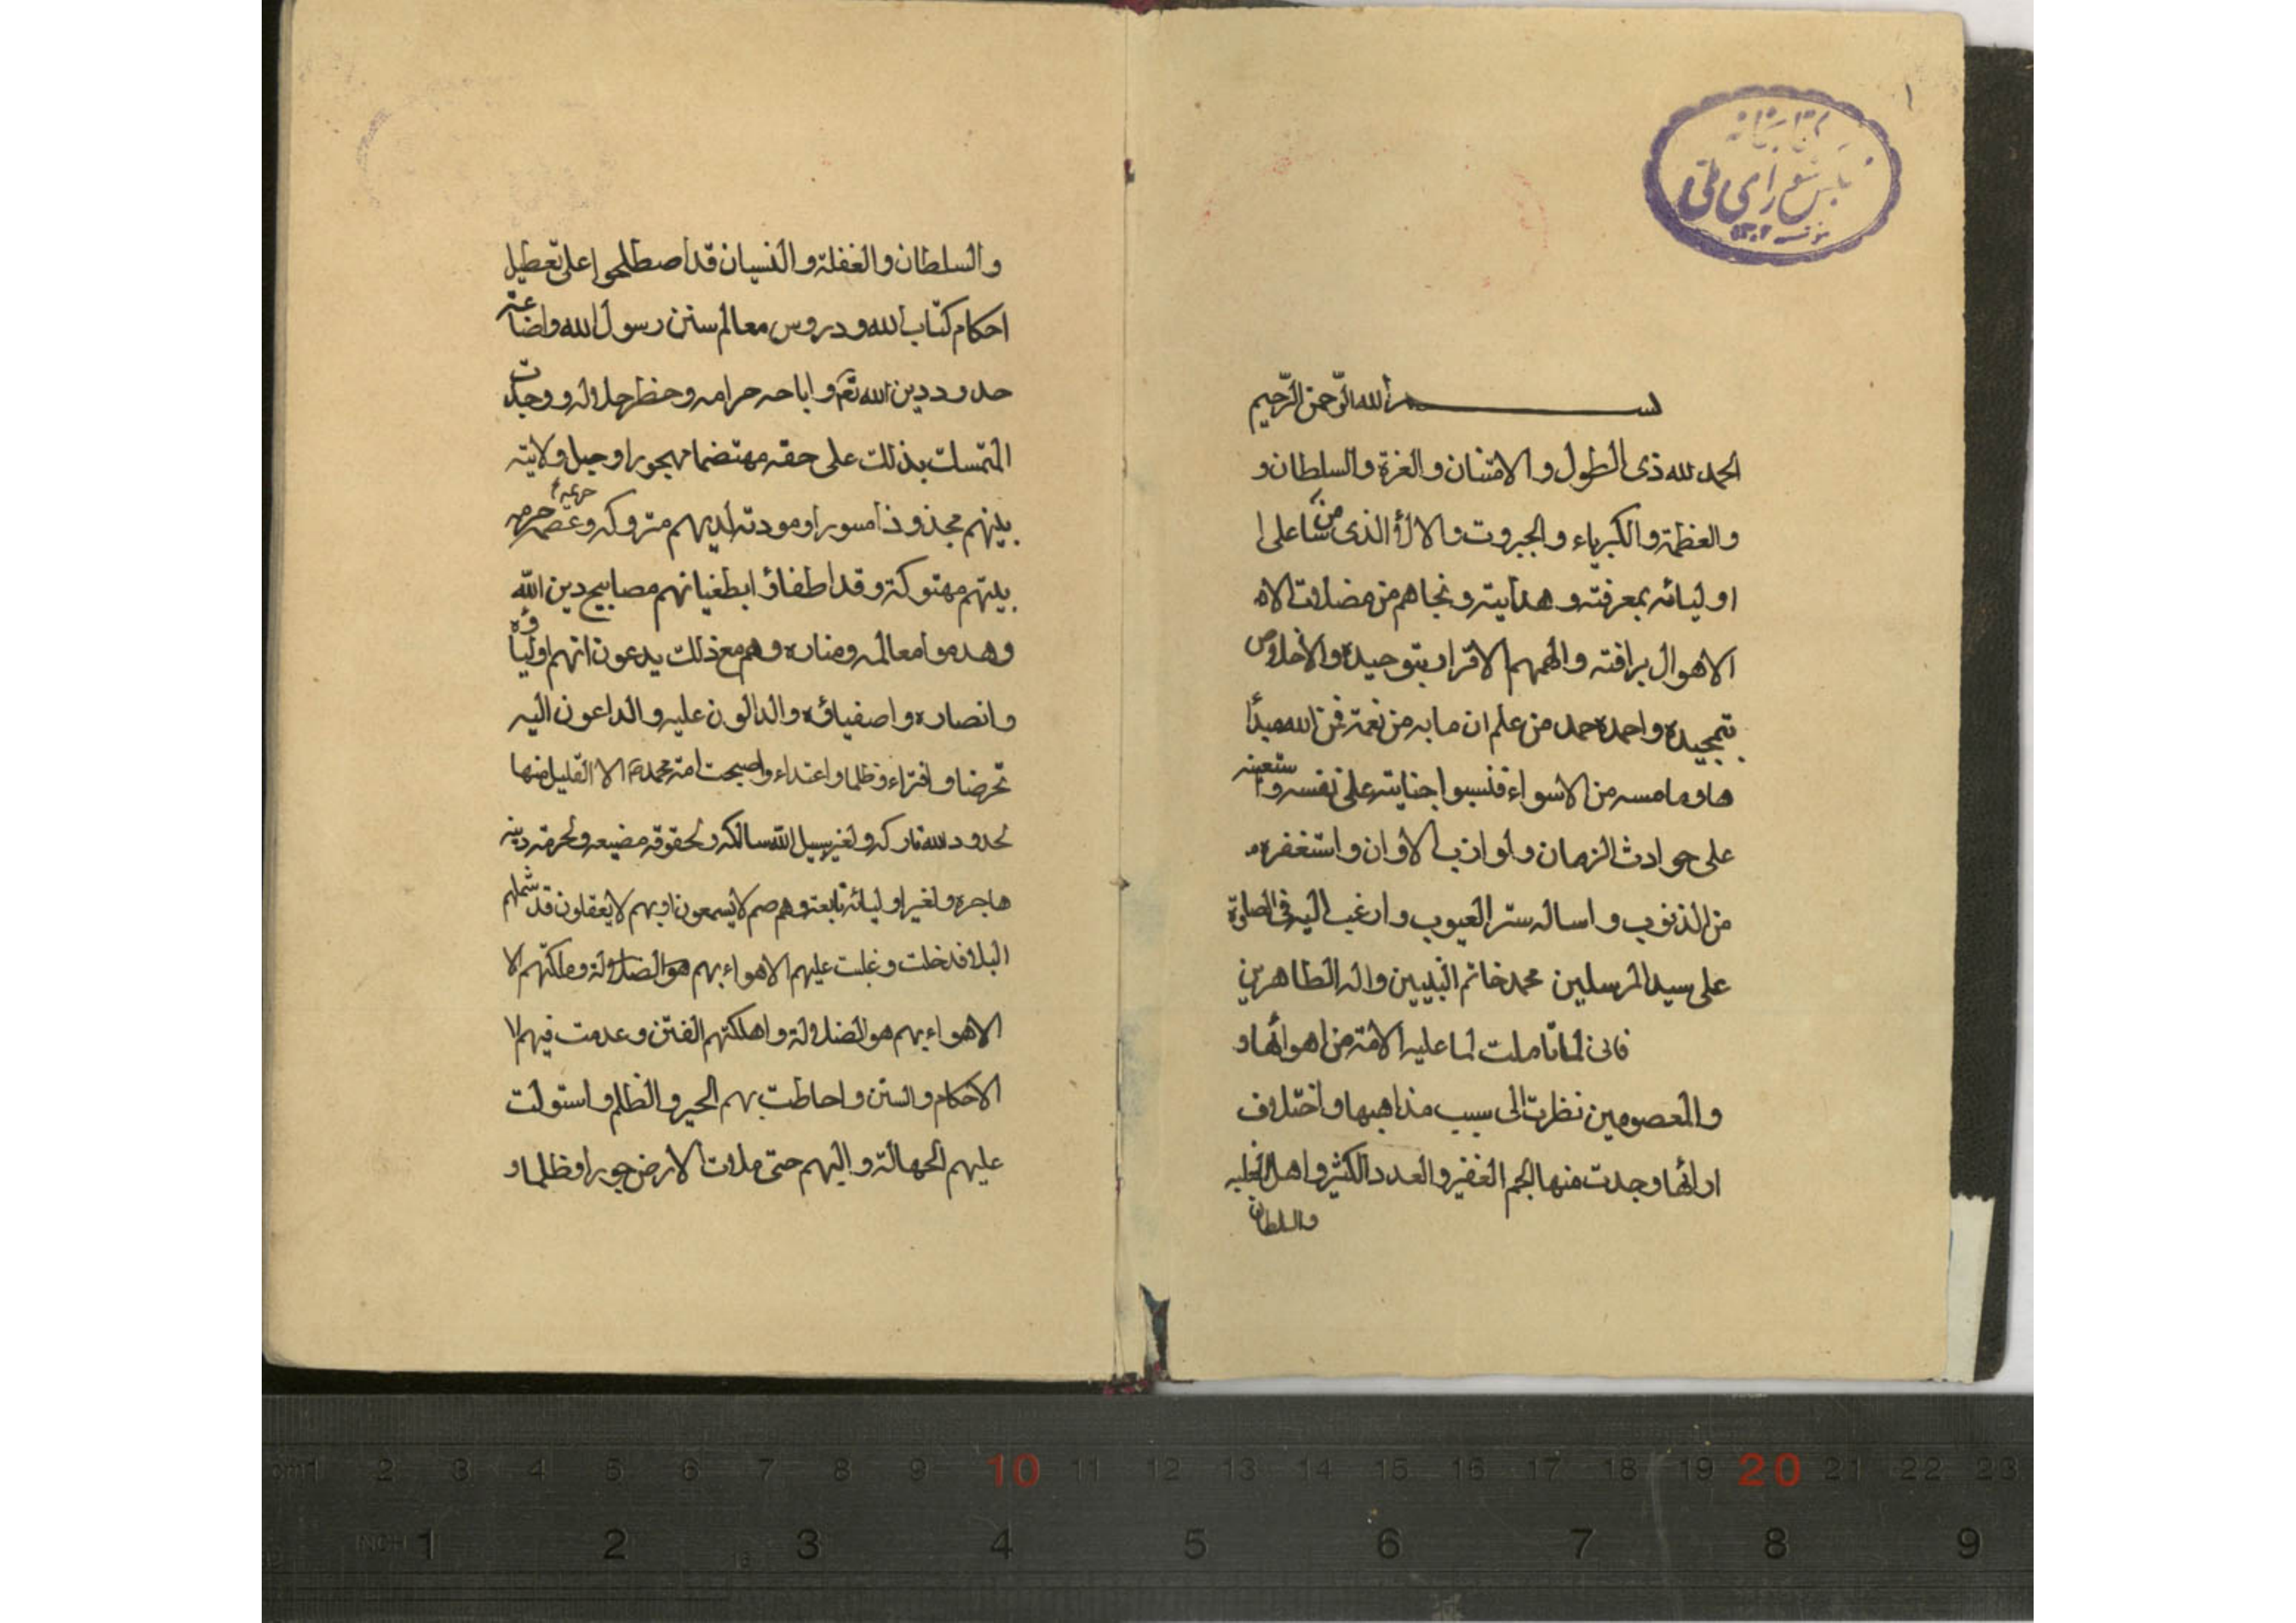 ١
كتابخانه
مجلس شوراى ملى
١٣٠٢
بسم الله الرحمن الرحيم
الحمد لله ذى الطول و الامتنان و العزة و السلطان و
و العظمة و الكبرياء و الجبروت و الالأ الذى من شاعلى ا
اوليائه بمعرفته و هدايته و نجاهم من مضلات الاه
الاهوال برافته و الهمهم الاقرار بتوحيده و الاخلاص
بتمجيده و احمده حمد من علم ان ما به من نعمة فمن الله مبدأ
ها و ما مسه من الاسواء فنسبوا جنايته على نفسه و استعينه
على حوادث الزمان و لوازب الاوان و استغفره
من الذنوب و اساله ستر العيوب و ارغب اليه فى الصلوة
على سيد المرسلين محمد خاتم النبيين و اله الطاهرين
فانى لما تاملت لما عليه الامة من اهوائها و
و المعصومين نظرت الى سبب مذاهبها و اختلاف
ارائها وجدت منها الجم الغفير و العدد الكثير و اهل الغلبه
والسلطان
و السلطان و الغفلة و النسيان قد اصطلحوا على تعطيل
احكام كتاب الله و دروس معالم سنن رسول الله و اضاعة
حدود دين الله تعم و اباحه حرامه و حظر حلاله و وجدت
المتمسك بذلك على حقه مهتضما مهجورا و حبل ولايته
بينهم مجذوذا مسورا و مودته لديهم متروكه و عصمه حرمه حريمه
بيتهم مهتوكة و قد اطفاؤا بطغيانهم مصابيح دين الله
و هدموا معالمه و مناره و هم مع ذلك يدعون انهم اولياؤه
و انصاره و اصفياؤه و الدالون عليه و الداعون اليه
تخرضا و افتراء و ظلما و اعتداء و اصبحت امة محمد ص الا القليل منها
لحدود الله تاركه و لغير سبيل الله سالكه و لحقوقه مضيعه و لحرمة دينه
هاجره و لغير اوليائه تابعة و هم صم لا يسمعون او بهم لا يعقلون قد شملهم
البلا فدخلت و غلبت عليهم الاهواء بهم هو الضلالة و ملكتهم الا
الاهواء بهم هو الضلالة و اهلكتهم الفتن و عدمت فيهم لا
الاحكام و السنن و احاطت بهم الحير و الظلم و استولت
عليهم الجهالة و اليهم حتى ملات الارض جورا و ظلما و
cm 1 2 3 4 5 6 7 8 9 10 11 12 13 14 15 16 17 18 19 20 21 22 23
INCH 1 2 3 4 5 6 7 8 9